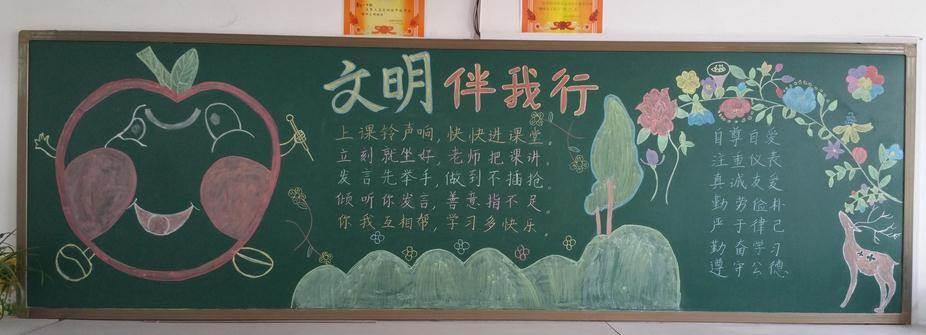 文明伴我行
上课铃声响，快快进课堂。
立刻就坐好，老师把课讲。
发言先举手，做到不插抢。
倾听你发言，善意指不足。
你我互相帮，学习多快乐。
自尊自爱
注重仪表
真诚友爱
勤劳俭朴
严于律己
勤奋学习
遵守公德